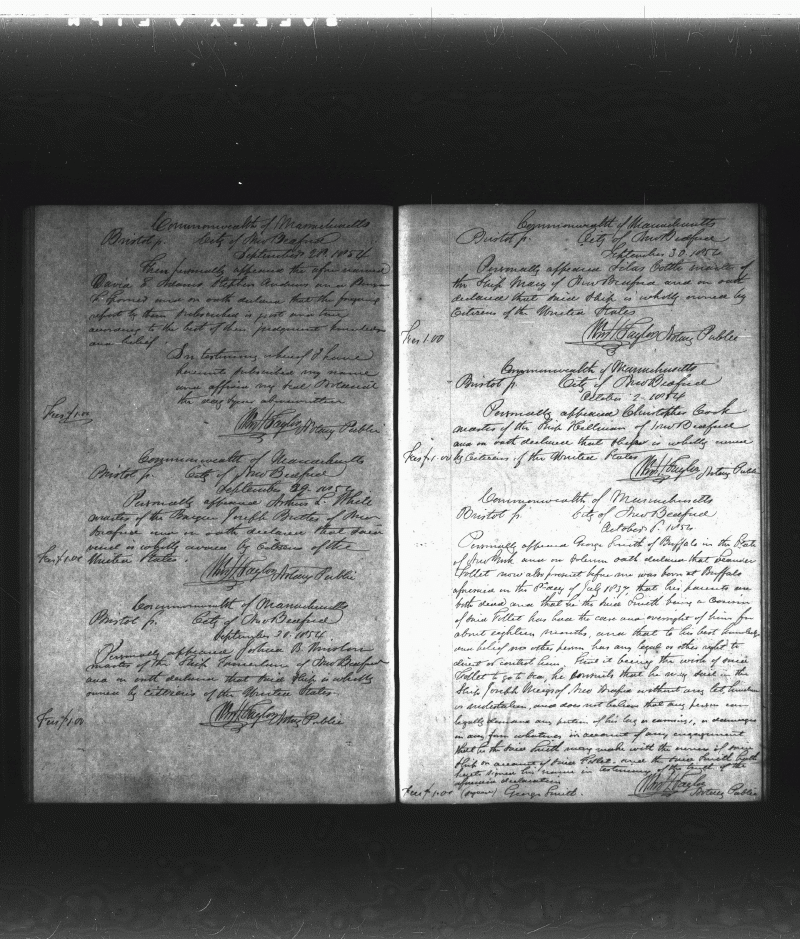 SAFETY FILM
Commonwealth of Massachusetts
Bristol ss. City of New Bedford
September 28 1854
Then personally appeared the afore named
David S. Adams Stephen Andrews and
and on oath declare that the foregoing
report by them subscribed is just and true
according to the best of their judgement knowledge
and belief
In testimony whereof I have
hereunto subscribed my name
and affixed my Seal Notarial
the day & year above written
Fees $1.00
Wm H Taylor Notary Public
Commonwealth of Massachusetts
Bristol ss. City of New Bedford
September 29 1854
Personally appeared Arthur L. White
master of the Barque Joseph Butler of New
Bedford and on oath declared that said
vessel is wholly owned by Citizens of the
Fees $1.00 United States.
Wm H Taylor Notary Public
Commonwealth of Massachusetts
Bristol ss. City of New Bedford
September 30. 1854
Personally appeared Joshua B. Winslow
master of the Ship of New Bedford
and on oath declared that said Ship is wholly
owned by citizens of the United States.
Fees $1.00
Wm H Taylor Notary Public
Commonwealth of Massachusetts
Bristol ss. City of New Bedford
September 30 1854
Personally appeared Silas master of
the Ship Mary of New Bedford and on oath
declared that said Ship is wholly owned by
Citizens of the United States
Fees 1.00
Wm H Taylor Notary Public
Commonwealth of Massachusetts
Bristol ss. City of New Bedford
October 2. 1854
Personally appeared Christopher Cook
master of the Ship of New Bedford
and on oath declared that Ship is wholly owned
Fees $1.00 by Citizens of the United States
Wm H Taylor Notary Public
Commonwealth of Massachusetts
Bristol ss. City of New Bedford
October 1854
Personally appeared George Smith of Buffalo in the State
of New York and on solemn oath declared that
Follet now also present before me was born at Buffalo
aforesaid in the day of July 1837, that his parents are
both dead and that he the said Smith being a cousin
of said Follet has had the care and oversight of him for
about eighteen months, and that to his best knowledge
and belief no other person has any legal or other right to
direct or control him. That it being the wish of said
Follet to go to sea, he permits that he may sail in the
Ship Joseph Meigs of New Bedford without any let, hindrance
or molestation, and does not believe that any person can
legally demand any portion of his lay or earnings, or damages
in any form whatever on account of any engagement
that he the said Smith may make with the owners of said
Ship on account of said Follet. and the said Smith hath
hereto signed his name in testimony of the truth of the
aforesaid declaration
Fees $1.00 (signed) George Smith.
Wm H Taylor
Notary Public